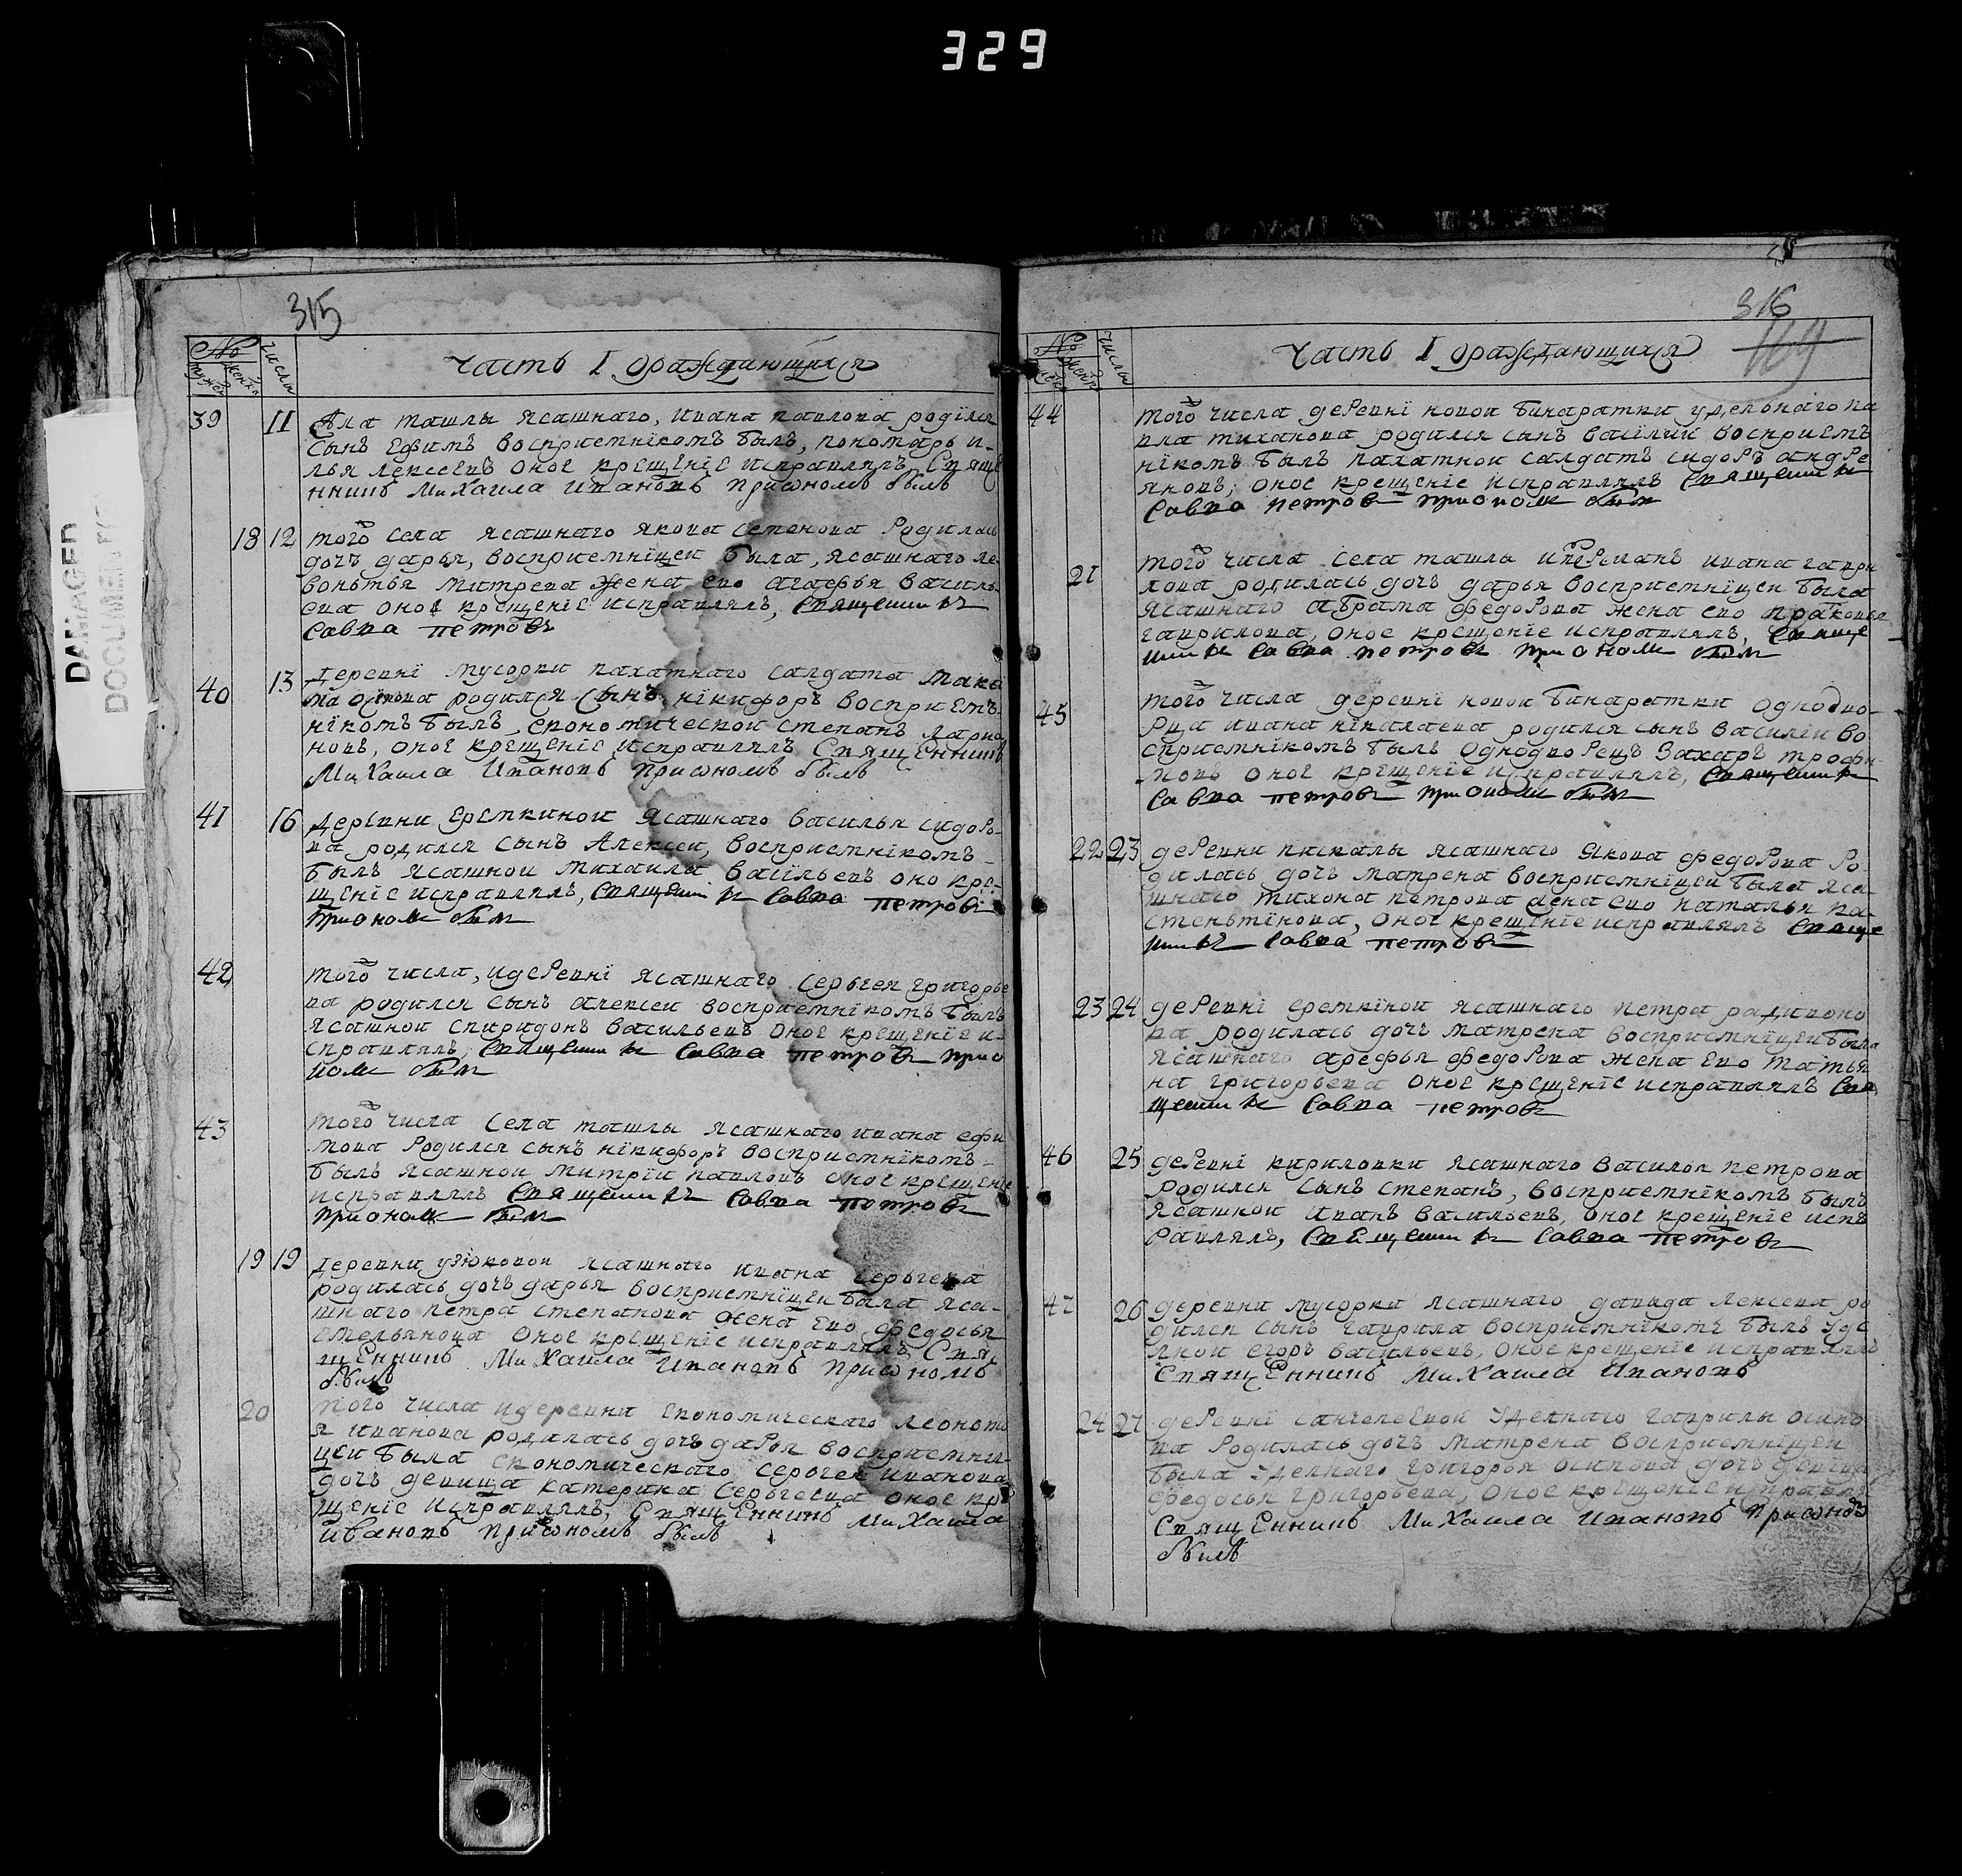 329
DAMAGED
DOCUMENT
315
№ числа
мужеск женск
Часть I ораждающихся
39 11 Села ташлы ясашнаго, ивана павлова родился
сынъ ефимъ восприемнікомъ былъ, пономарь и-
лья лексеевъ оное крещеніе исправлялъ, Свяще
нникъ Михаила Ивановъ присномъ былъ
18 12 того села ясашнаго якова семенова родилась
дочъ дарья, восприемніцеи была, ясашнаго ле-
вонтья митрева жена ево агафья василь-
ева оное крещеніе исправлялъ, священникъ
Савва петровъ
40 13 деревні мусорки пахатнаго салдата
родился сынъ нікифоръ восприемъ-
нікомъ былъ, економическои степанъ ларио
новъ, оное крещеніе исправлялъ Священникъ
Михаила Ивановъ присномъ былъ
41 16 деревни еремкинои ясашнаго василья сидоро-
ва родился сынъ Алексеи, восприемнікомъ-
былъ ясашнои михаила васільевъ оно кре-
щеніе исправлялъ, священникъ Савва петровъ
приономъ былъ
42 того числа, идеревні ясашнаго серьгея григорье
ва родился сынъ алексеи восприемнікомъ былъ
ясашнои спиридонъ васильевъ оное крещеніе и-
справлялъ, священникъ Савва петровъ прио
номъ былъ
43 того числа села ташлы ясашнаго ивана ефи
мова родился сынъ нікифоръ восприемнікомъ-
былъ ясашнои митріи павловъ оное крещеніе
исправлялъ священникъ Савва петровъ
приономъ былъ
19 19 деревни узюковои ясашнаго ивана серьгева
родилась дочъ дарья восприемніцеи была яса-
шнаго петра степанова жена ево федосья
емельянова оное крещеніе исправлялъ, Свя
щенникъ Михаила Ивановъ присномъ
былъ
20 того числа идеревни економическаго леонть
я иванова родилась дочъ дарья восприемни-
цеи была економическаго серьгея иванова
дочъ девица катерина серьгеева оное кре
щеніе исправлялъ, Священникъ Михаила
Ивановъ присномъ былъ
316
169
№ числы
женск
Часть I ораждающихся
44 того числа деревні новои бинаратки удельнаго па
вла тиханова родился сынъ василии восприемъ
нікомъ былъ пахатнои салдатъ сидоръ андре
яновъ, оное крещеніе исправлялъ священникъ
Савва петровъ приономъ былъ
21 того числа села ташлы ивана гаври
лова родилась дочъ дарья восприемніцеи была
ясашнаго абрама федорова жена ево праковья
гаврилова, оное крещеніе исправлялъ, свяще
нникъ Савва петровъ приономъ былъ
45 того числа деревні новои бинаратки однодво-
рца ивана нікалаева родился сынъ василіи во
сприемнікомъ былъ однодворецъ захаръ трофи-
мовъ оное крещеніе исправлялъ, священникъ
Савва петровъ приономъ былъ
22 23 деревни пискалы ясашнаго якова федорова ро-
дилась дочъ матрена восприемніцеи была яса-
шнаго тихона петрова жена ево наталья ка-
стеньтінова, оное крещеніе исправлялъ свяще
нникъ Савва петровъ
23 24 деревні еремкінои ясашнаго петра радивоно
ва родилась дочъ матрена восприемніцеи была
ясашнаго арефья федорова жена ево татья
на григорьева оное крещеніе исправлялъ свя
щенникъ Савва петровъ
46 25 деревні кириловки ясашнаго василья петрова
родился сынъ степанъ, восприемнікомъ былъ
ясашнои иванъ васильевъ, оное крещеніе исп
равлялъ, священникъ Савва петровъ
47 26 деревни мусорки ясашнаго давыда лексева ро
дился сынъ гаврила восприемнікомъ былъ уде
лнои егоръ васильевъ, оное крещеніе исправлялъ
Священникъ Михаила Ивановъ
24 27 деревні санчелеевои уделнаго гаврилы осипо
ва родилась дочъ матрена восприемніцеи
была уделнаго григорья осипова дочъ девица
федосья григорьева, оное крещеніе исправлялъ
Священникъ Михаила Ивановъ присномъ
былъ